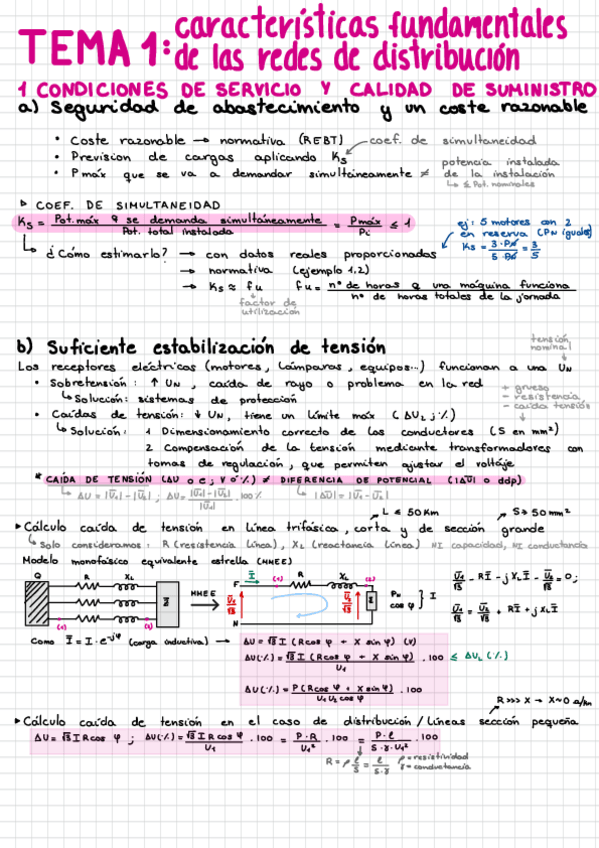 TEMA 1: características fundamentales
de las redes de distribución
1 CONDICIONES DE SERVICIO Y CALIDAD DE SUMINISTRO
a) Seguridad de abastecimiento y un coste razonable
• Coste razonable → normativa (REBT)
• Prevision de cargas aplicando Ks
coef. de simultaneidad
• Pmáx que se va a demandar simultáneamente ≠ potencia instalada de la instalación
↳ ≤ Pot. nominales
▹ COEF. DE SIMULTANEIDAD
Ks = Pot. máx q se demanda simultáneamente / Pot. total instalada = Pmáx / Pi ≤ 1
ej: 5 motores con 2
en reserva (PN iguales)
Ks = 3·PN / 5·PN = 3/5
↳ ¿Cómo estimarlo? → con datos reales proporcionados
→ normativa (ejemplo 1.2)
→ Ks ≈ fu fu = nº de horas q una máquina funciona / nº de horas totales de la jornada
factor de
utilización
b) Suficiente estabilización de tensión
tensión
nominal
Los receptores eléctricos (motores, lámparas, equipos...) funcionan a una UN
• Sobretensión: ↑ UN, caída de rayo o problema en la red
↳ Solución: sistemas de protección
+ grueso
- resistencia
- caída tensión
• Caídas de tensión: ↓ UN, tiene un límite máx (ΔUL ; %)
↳ Solución: 1 Dimensionamiento correcto de los conductores (S en mm²)
2 Compensación de la tensión mediante transformadores con
tomas de regulación, que permiten ajustar el voltaje
* CAÍDA DE TENSIÓN (ΔU o e ; V o %) ≠ DIFERENCIA DE POTENCIAL (|ΔU| o ddp)
↳ ΔU = |Ua| - |Ub| ; ΔU = |Ua| - |Ub| / |Ua| · 100 %
↳ |ΔU| = |Ua - Ub|
L ≤ 50 Km
S > 50 mm²
▸ Cálculo caída de tensión en línea trifásica, corta y de sección grande
↳ Solo consideramos: R (resistencia línea), XL (reactancia línea) NI capacidad, NI conductancia
Modelo monofásico equivalente estrella (MMEE)
Q R XL
Z
(1) (2)
MMEE
F I (1) R XL (2)
U1/√3 U2/√3 Z
N
PN
cos φ } I
U1/√3 - RI - j XL I - U2/√3 = 0;
U1/√3 = U2/√3 + RI + j XL I
Como I = I · e^-jφ (carga inductiva) → ΔU = √3 I (R cos φ + X sin φ) (V)
ΔU(%) = √3 I (R cos φ + X sin φ) / U1 · 100 ≤ ΔUL (%)
ΔU(%) = P (R cos φ + X sin φ) / U1 U2 cos φ · 100
R >>> X → X ~ 0 Ω/Km
▸ Cálculo caída de tensión en el caso de distribución / Líneas sección pequeña
ΔU = √3 I R cos φ ; ΔU(%) = √3 I R cos φ / U1 · 100 = P · R / U1² · 100 = P · l / S · γ · U1² · 100
R = ρ l/S = l / S·γ
ρ = resistividad
γ = conductancia